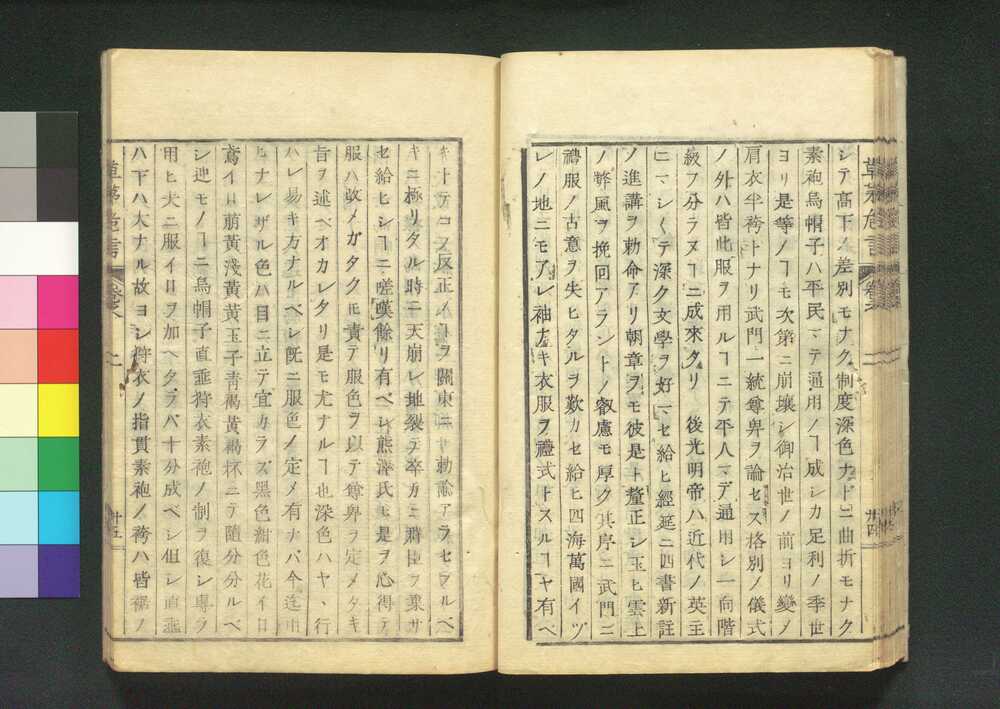 シテ高下ノ差別モナク制度深色ナドニ曲折モナク
素袍烏帽子ハ平民マデ通用ノヿ成シカ足利ノ季世
ヨリ是等ノヿモ次第ニ崩壊シ御治世ノ前ヨリ變メ
肩衣半袴トナリ武門一統尊卑ヲ論セズ格別ノ儀式
ノ外ハ皆此服ヲ用ルヿニテ平人マデ通用シ一向階
級ヲ分ラヌヿニ成來タリ　後光明帝ハ近代ノ英主
ニマシ〱テ深ク文學ヲ好マセ給ヒ經筵ニ四書新註
ノ進講ヲ勅命アリ朝章ヲモ彼是ト釐正シ玉ヒ雲上
ノ蜂風ヲ挽回アラントノ叡慮モ厚ク其序ニ武門ニ
禮服ノ古意ヲ失ヒタルヲ歎カセ給ヒ四海萬國イヅ
レノ地ニモアレ袖ナキ衣服ヲ禮式トスルヿヤ有ベ
キ十デコノ反正ノヿヲ關東ニ十勅諭アラセラルベ
キニ極リタル時ニ天崩レ地裂テ卒カニ羣臣ヲ棄サ
セ給ヒシヿニ嗟嘆餘リ有ベシ熊澤氏モ是ヲ心得テ
服ハ改メガタクモ責テ服色ヲ以テ尊卑ヲ定メタキ
旨ヲ述ベオカレタリ是モ尤ナルヿ也深色ハヤヽ行
ハレ易キ方ナルベシ既ニ服色ノ定メ有ナバ今迄用
ヒナレザル色ハ目ニ立テ宜カラズ黑色紺色花イロ
鳶イロ萠黃淺黃黃玉子靑褐黃褐抔ニテ隨分分ルベ
シ迚モノヿニ烏帽子直垂狩衣素袍ノ制ヲ復シ專ラ
用ヒ大ニ服イロヲ加ヘタラバ十分成ベシ但シ直垂
ハ下ハ大ナル故ヨシ狩衣ノ指貫素袍ノ袴ハ皆裾ノ
草茅危言
卷之
廿五
草茅危言
卷之
廿四